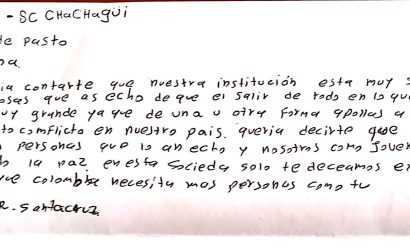 - SC CHaCHagüi
de pasto
ia contarte que nuestra institución esta muy
osas que as echo de que el salir de todo en lo que
uy grande ya que de una u otra forma apollas a
to comflicto en nuestro pais. queria decirte que
personas que lo an echo y nosotros como Joven
la paz en esta socieda solo te deceamos e
que colombia necesita mas personas como tu
R. Santacruz